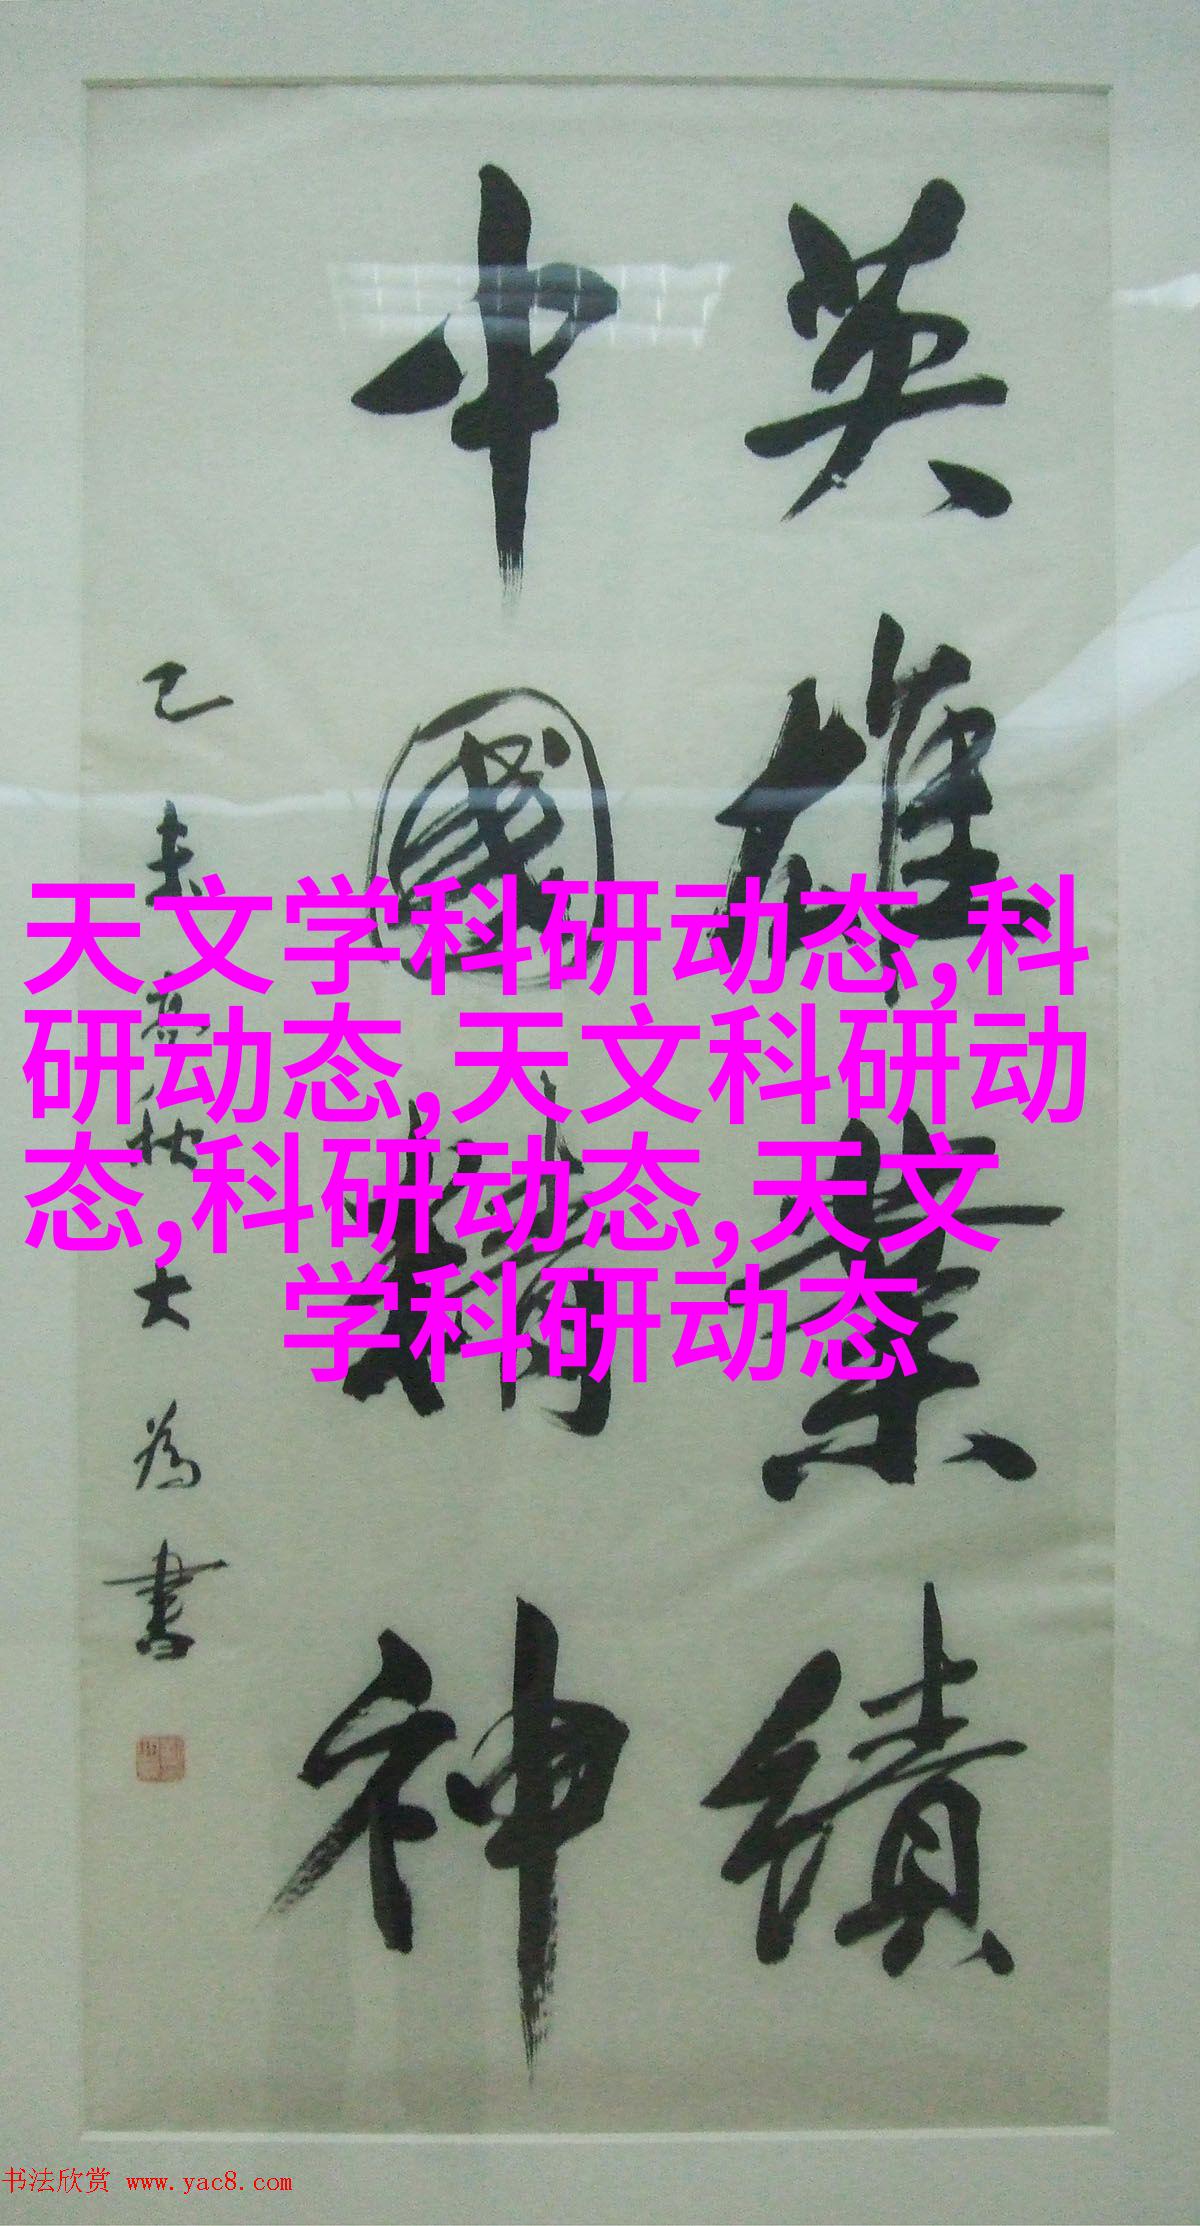 英雄業績
中國精神
乙未高秋大為書
天文学科研动态,科
研动态,天文科研动
态,科研动态,天文
学科研动态
书法欣赏 www.yac8.com